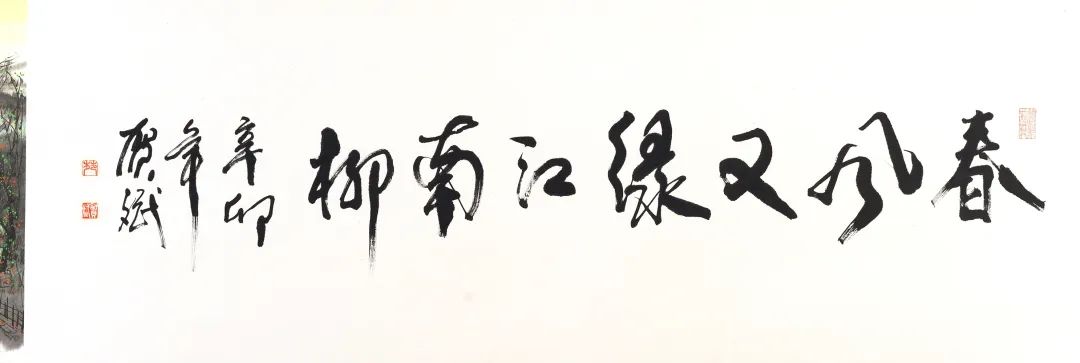 春风又绿江南柳
辛卯
年